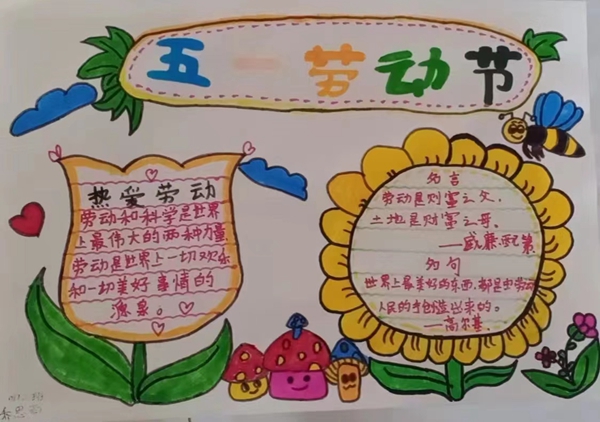 五一劳动节
热爱劳动
劳动和科学是世界
上最伟大的两种力量
劳动是世界上一切欢乐
和一切美好事情的
源泉。
名言
劳动是财富之父，
土地是财富之母。
——威廉·配第
名句
世界上最美好的东西，都是由劳动
人民的手创造出来的。
——高尔基